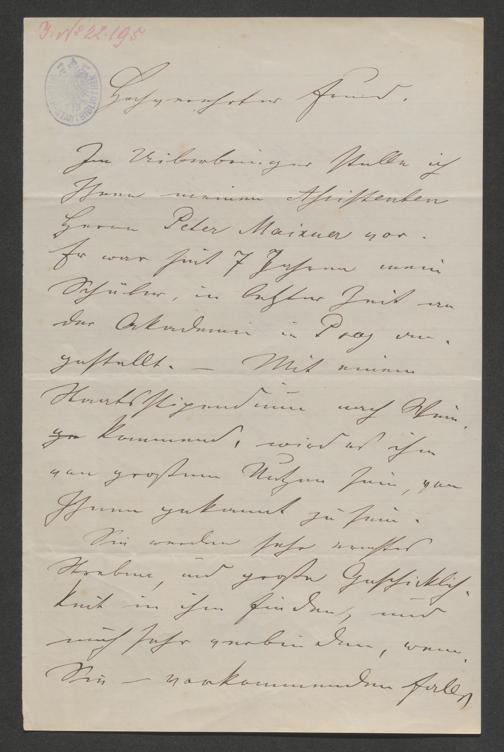 J. No 22.195
Hochverehrter Freund.
Im Uiberbringer stelle ich
Ihnen meinen Assistenten
Herrn Peter Maixner vor.
Er war seit 7 Jahren mein
Schüler, in letzter Zeit an
der Akademie in Prag an-
gestellt. — Mit einem
Staatsstipendium nach Wien
kommend, wird es ihm
von großem Nutzen sein, von
Ihnen gekannt zu sein.
Sie werden sehr ernstes
Streben, und große Geschicklich-
keit in ihm finden, und
mich sehr verbinden, wenn
Sie — vorkommenden Falls